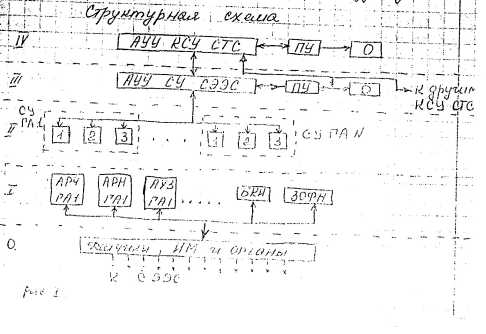 Структурная схема
IV АУУ КСУ СТС ПУ О
III АУУ СУ СЭЭС ПУ О
К другим
КСУ СТС
СУ
ГА1
II 1 2 3 .... 1 2 3 СУ ГА N
I АРЧ ГА1 АРН ГА1 АУЗ ГА1 ..... БКН ЗСФН
0 Датчики ИМ и органы
К СЭЭС
рис 1